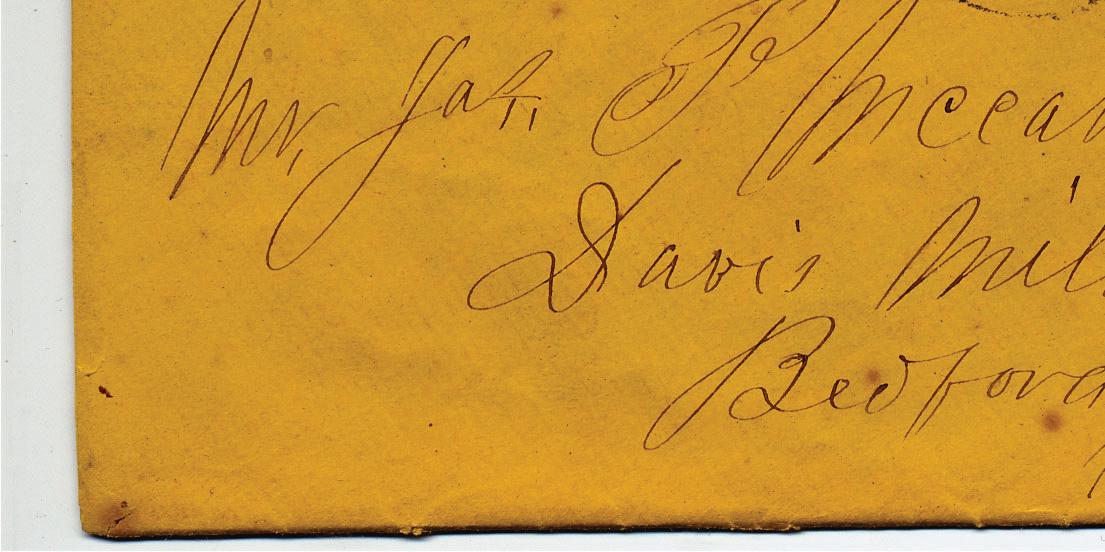 Mr, Jas, P Mccar
Davis Mil
Bedford